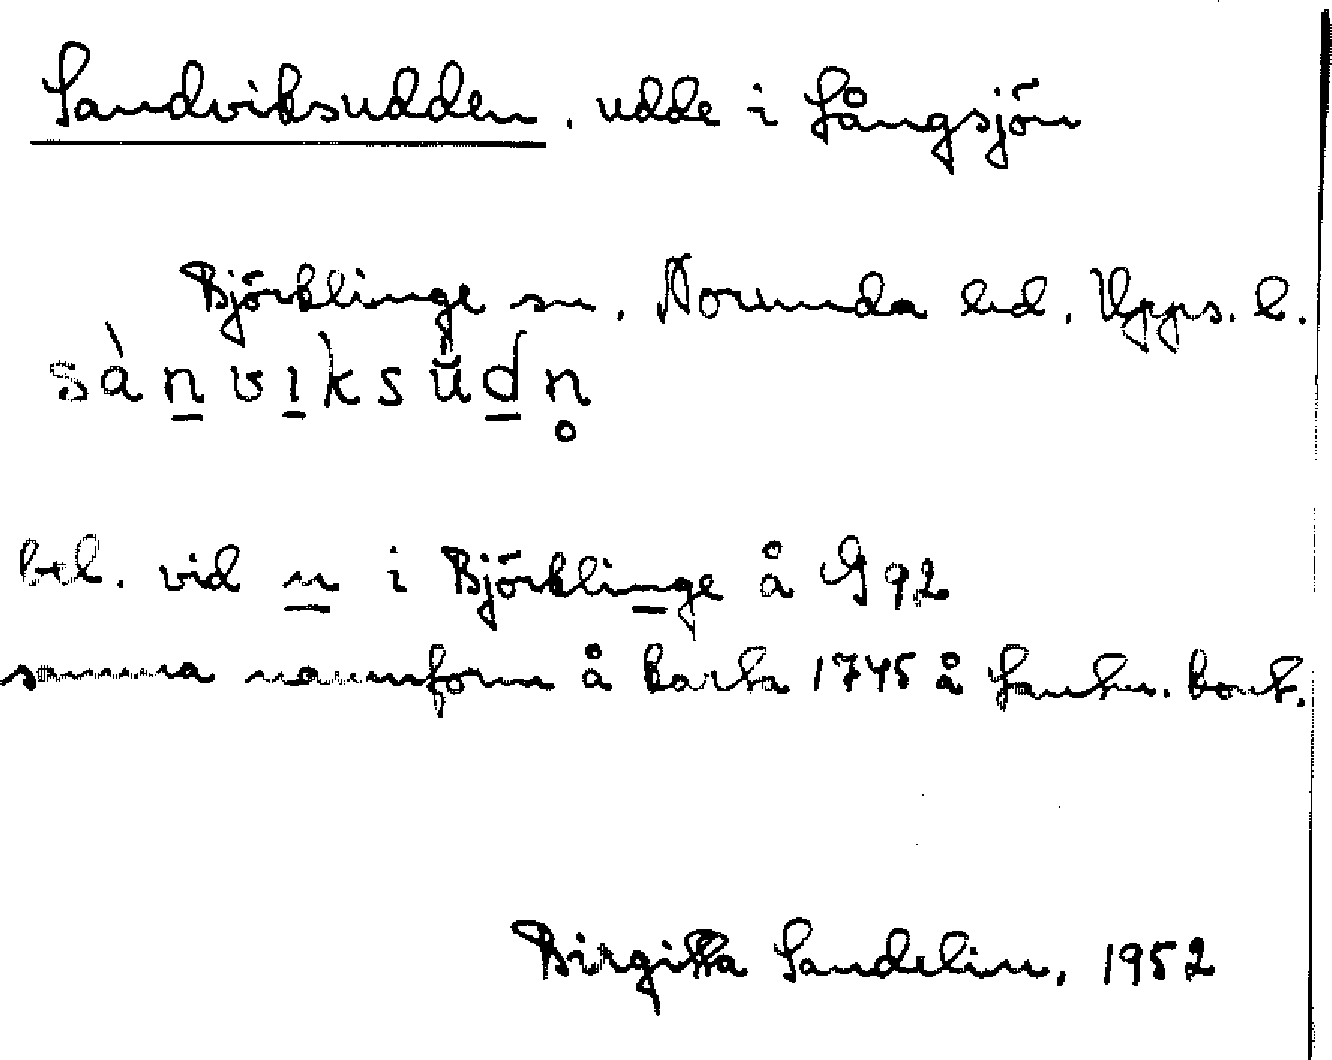 Sandviksudden, udde i Långsjön
Björklinge sn, Norunda hd, Upps. l.
sànvıksŭdn̥
bel. vid n i Björklinge å G 92
samma namnform å karta 1745 å Lantm. kont.
Birgitta Sandelin, 1952